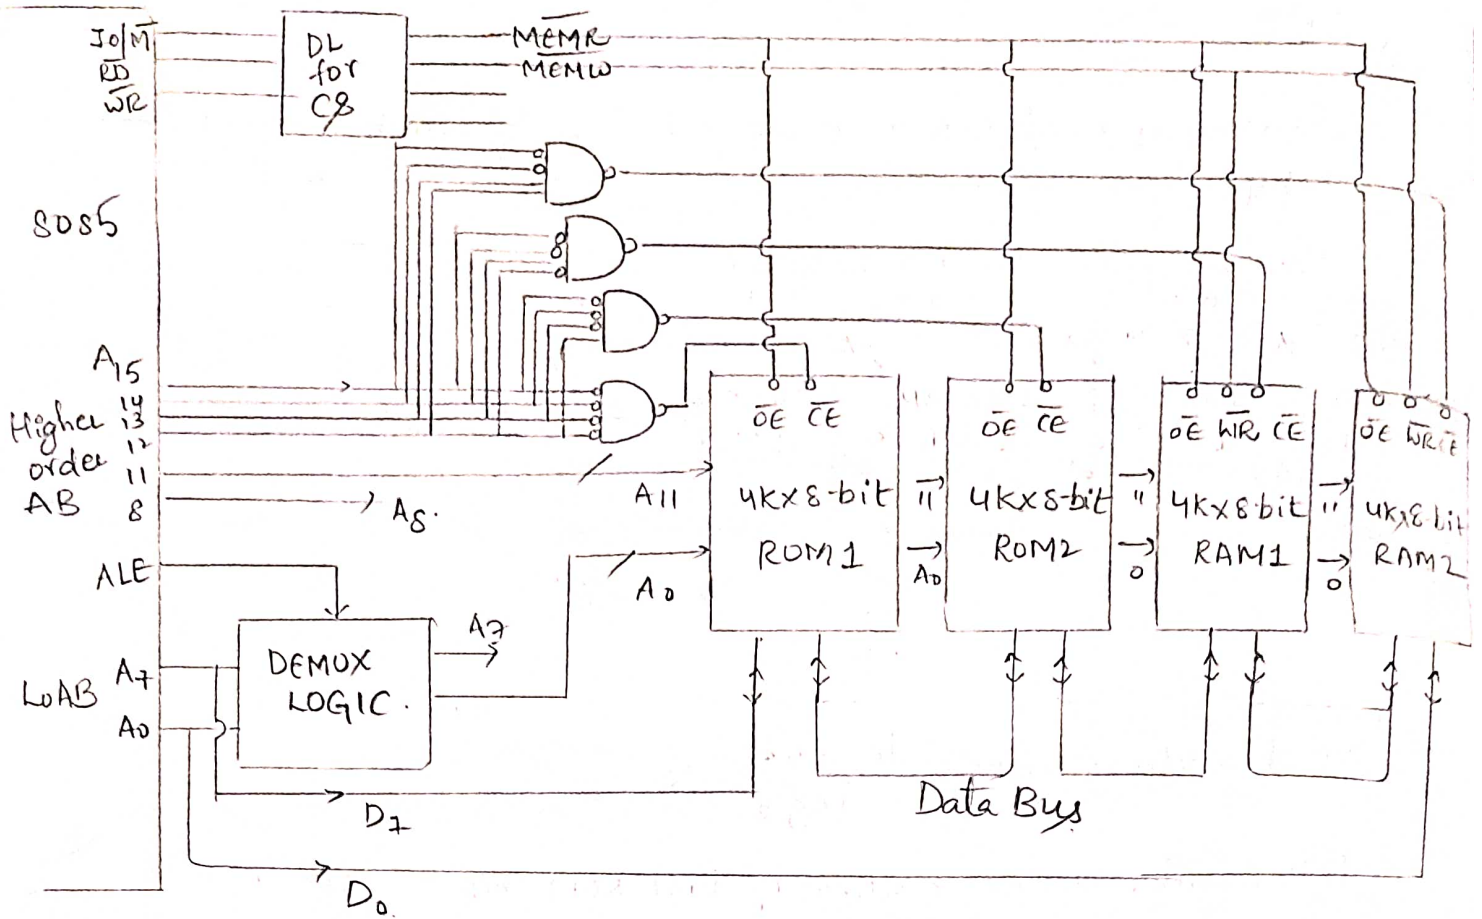 IO/M̅
R̅D̅
W̅R̅
DL
for
CS
M̅E̅M̅R̅
M̅E̅M̅W̅
8085
A15
14
13
12
11
8
Higher
order
AB
A8.
A11
A0
ALE
A7
A0
LOAB
DEMUX
LOGIC.
A7
D7
D0
O̅E̅ C̅E̅
4K×8-bit
ROM1
11
A0
O̅E̅ C̅E̅
4K×8-bit
ROM2
11
0
O̅E̅ W̅R̅ C̅E̅
4K×8-bit
RAM1
11
0
O̅E̅ W̅R̅ C̅E̅
4K×8-bit
RAM2
Data Bus